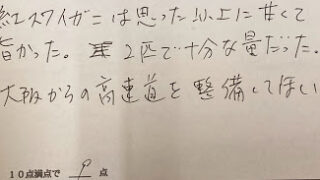 紅ズワイガニは思った以上に甘くて
旨かった。 2匹で十分な量だった。
大阪からの高速道を整備してほしい
10点満点で 9 点